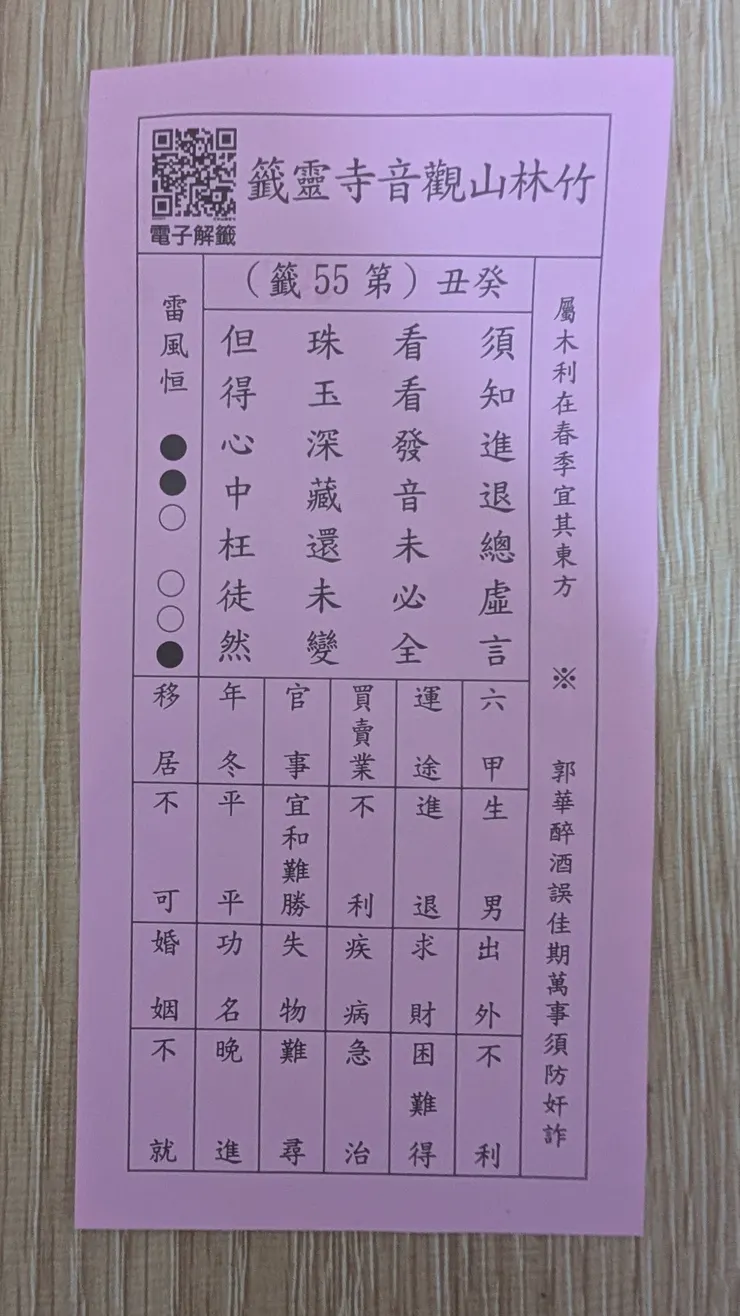 竹林山觀音寺靈籤
電子解籤
癸丑（第55籤）
屬木利在春季宜其東方 ※ 郭華醉酒誤佳期萬事須防奸詐
須知進退總虛言
看看發音未必全
珠玉深藏還未變
但得心中枉徒然
雷風恒
●●○ ○○●
六甲 生男
運途 進退
買賣業 不利
官事 宜和難勝
年冬 平平
移居 不可
出外 不利
求財 困難得
疾病 急治
失物 難尋
功名 晚進
婚姻 不就